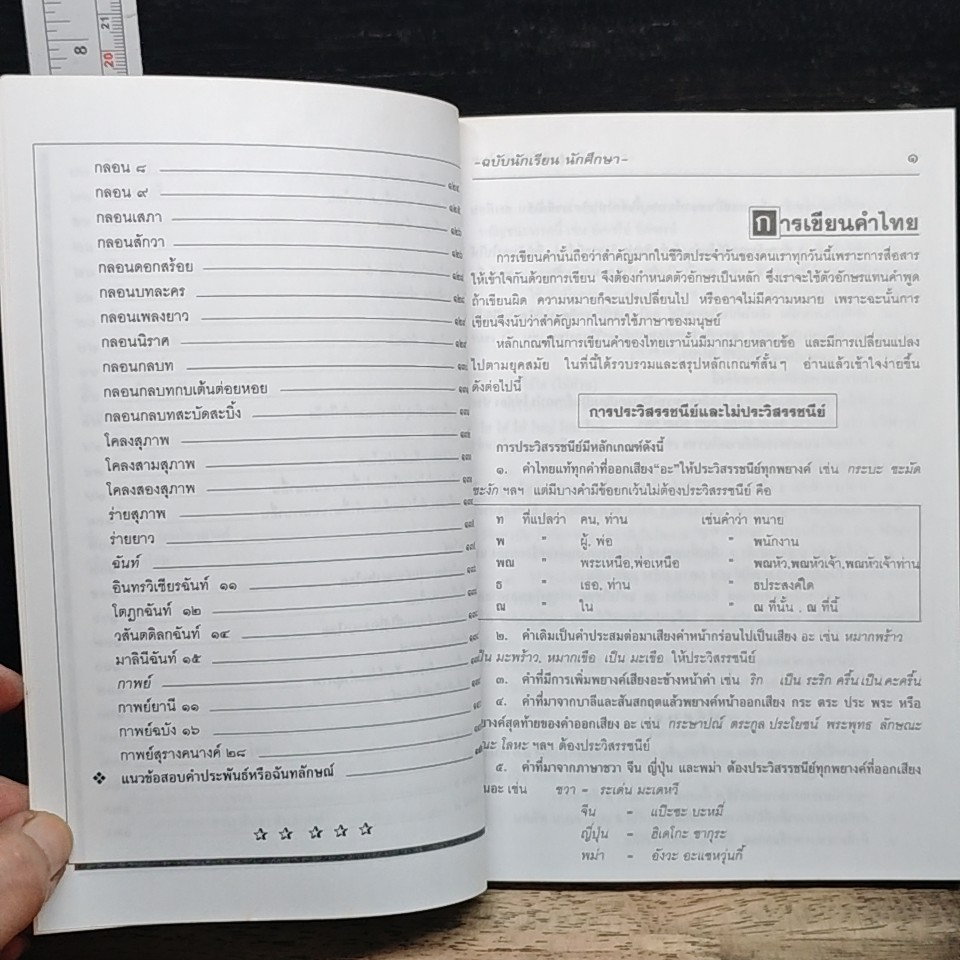 8
21
20
กลอน ๘
กลอน ๙
กลอนเสภา
กลอนสักวา
กลอนดอกสร้อย
กลอนบทละคร
กลอนเพลงยาว
กลอนนิราศ
กลอนกลบท
กลอนกลบทกบเต้นต่อยหอย
กลอนกลบทสะบัดสะบิ้ง
โคลงสุภาพ
โคลงสามสุภาพ
โคลงสองสุภาพ
ร่ายสุภาพ
ร่ายยาว
ฉันท์
อินทรวิเชียรฉันท์ ๑๑
โตฎกฉันท์ ๑๒
วสันตดิลกฉันท์ ๑๔
มาลินีฉันท์ ๑๕
กาพย์
กาพย์ยานี ๑๑
กาพย์ฉบัง ๑๖
กาพย์สุรางคนางค์ ๒๘
❖ แนวข้อสอบคำประพันธ์หรือฉันทลักษณ์
-ฉบับนักเรียน นักศึกษา- ๑
การเขียนคำไทย
การเขียนคำนั้นถือว่าสำคัญมากในชีวิตประจำวันของคนเราทุกวันนี้เพราะการสื่อสาร
ให้เข้าใจกันด้วยการเขียน จึงต้องกำหนดตัวอักษรเป็นหลัก ซึ่งเราจะใช้ตัวอักษรแทนคำพูด
ถ้าเขียนผิด ความหมายก็จะแปรเปลี่ยนไป หรืออาจไม่มีความหมาย เพราะฉะนั้นการ
เขียนจึงนับว่าสำคัญมากในการใช้ภาษาของมนุษย์
หลักเกณฑ์ในการเขียนคำของไทยเรานั้นมีมากมายหลายข้อ และมีการเปลี่ยนแปลง
ไปตามยุคสมัย ในที่นี้ได้รวบรวมและสรุปหลักเกณฑ์สั้นๆ อ่านแล้วเข้าใจง่ายขึ้น
ดังต่อไปนี้
การประวิสรรชนีย์และไม่ประวิสรรชนีย์
การประวิสรรชนีย์มีหลักเกณฑ์ดังนี้
๑. คำไทยแท้ทุกคำที่ออกเสียง"อะ"ให้ประวิสรรชนีย์ทุกพยางค์ เช่น กระบะ ชะมัด
ชะงัก ฯลฯ แต่มีบางคำมีข้อยกเว้นไม่ต้องประวิสรรชนีย์ คือ
ท ที่แปลว่า คน, ท่าน เช่นคำว่า ทนาย
พ " ผู้, พ่อ " พนักงาน
พณ " พระเหนือ,พ่อเหนือ " พณหัว,พณหัวเจ้า,พณหัวเจ้าท่าน
ธ " เธอ, ท่าน " ธประสงค์ใด
ณ " ใน " ณ ที่นั้น , ณ ที่นี้
๒. คำเดิมเป็นคำประสมต่อมาเสียงคำหน้ากร่อนไปเป็นเสียง อะ เช่น หมากพร้าว
เป็น มะพร้าว, หมากเขือ เป็น มะเขือ ให้ประวิสรรชนีย์
๓. คำที่มีการเพิ่มพยางค์เสียงอะข้างหน้าคำ เช่น ริก เป็น ระริก ครึ้นเป็นคะครึ้น
๔. คำที่มาจากบาลีและสันสกฤตแล้วพยางค์หน้าออกเสียง กระ ตระ ประ พระ หรือ
พยางค์สุดท้ายของคำออกเสียง อะ เช่น กระษาปณ์ ตระกูล ประโยชน์ พระพุทธ ลักษณะ
โลหะ ฯลฯ ต้องประวิสรรชนีย์
๕. คำที่มาจากภาษาชวา จีน ญี่ปุ่น และพม่า ต้องประวิสรรชนีย์ทุกพยางค์ที่ออกเสียง
เช่น ชวา - ระเด่น มะเดหวี
จีน - แป๊ะซะ บะหมี่
ญี่ปุ่น - ฮิเดโกะ ซากุระ
พม่า - อังวะ อะแซหวุ่นกี้